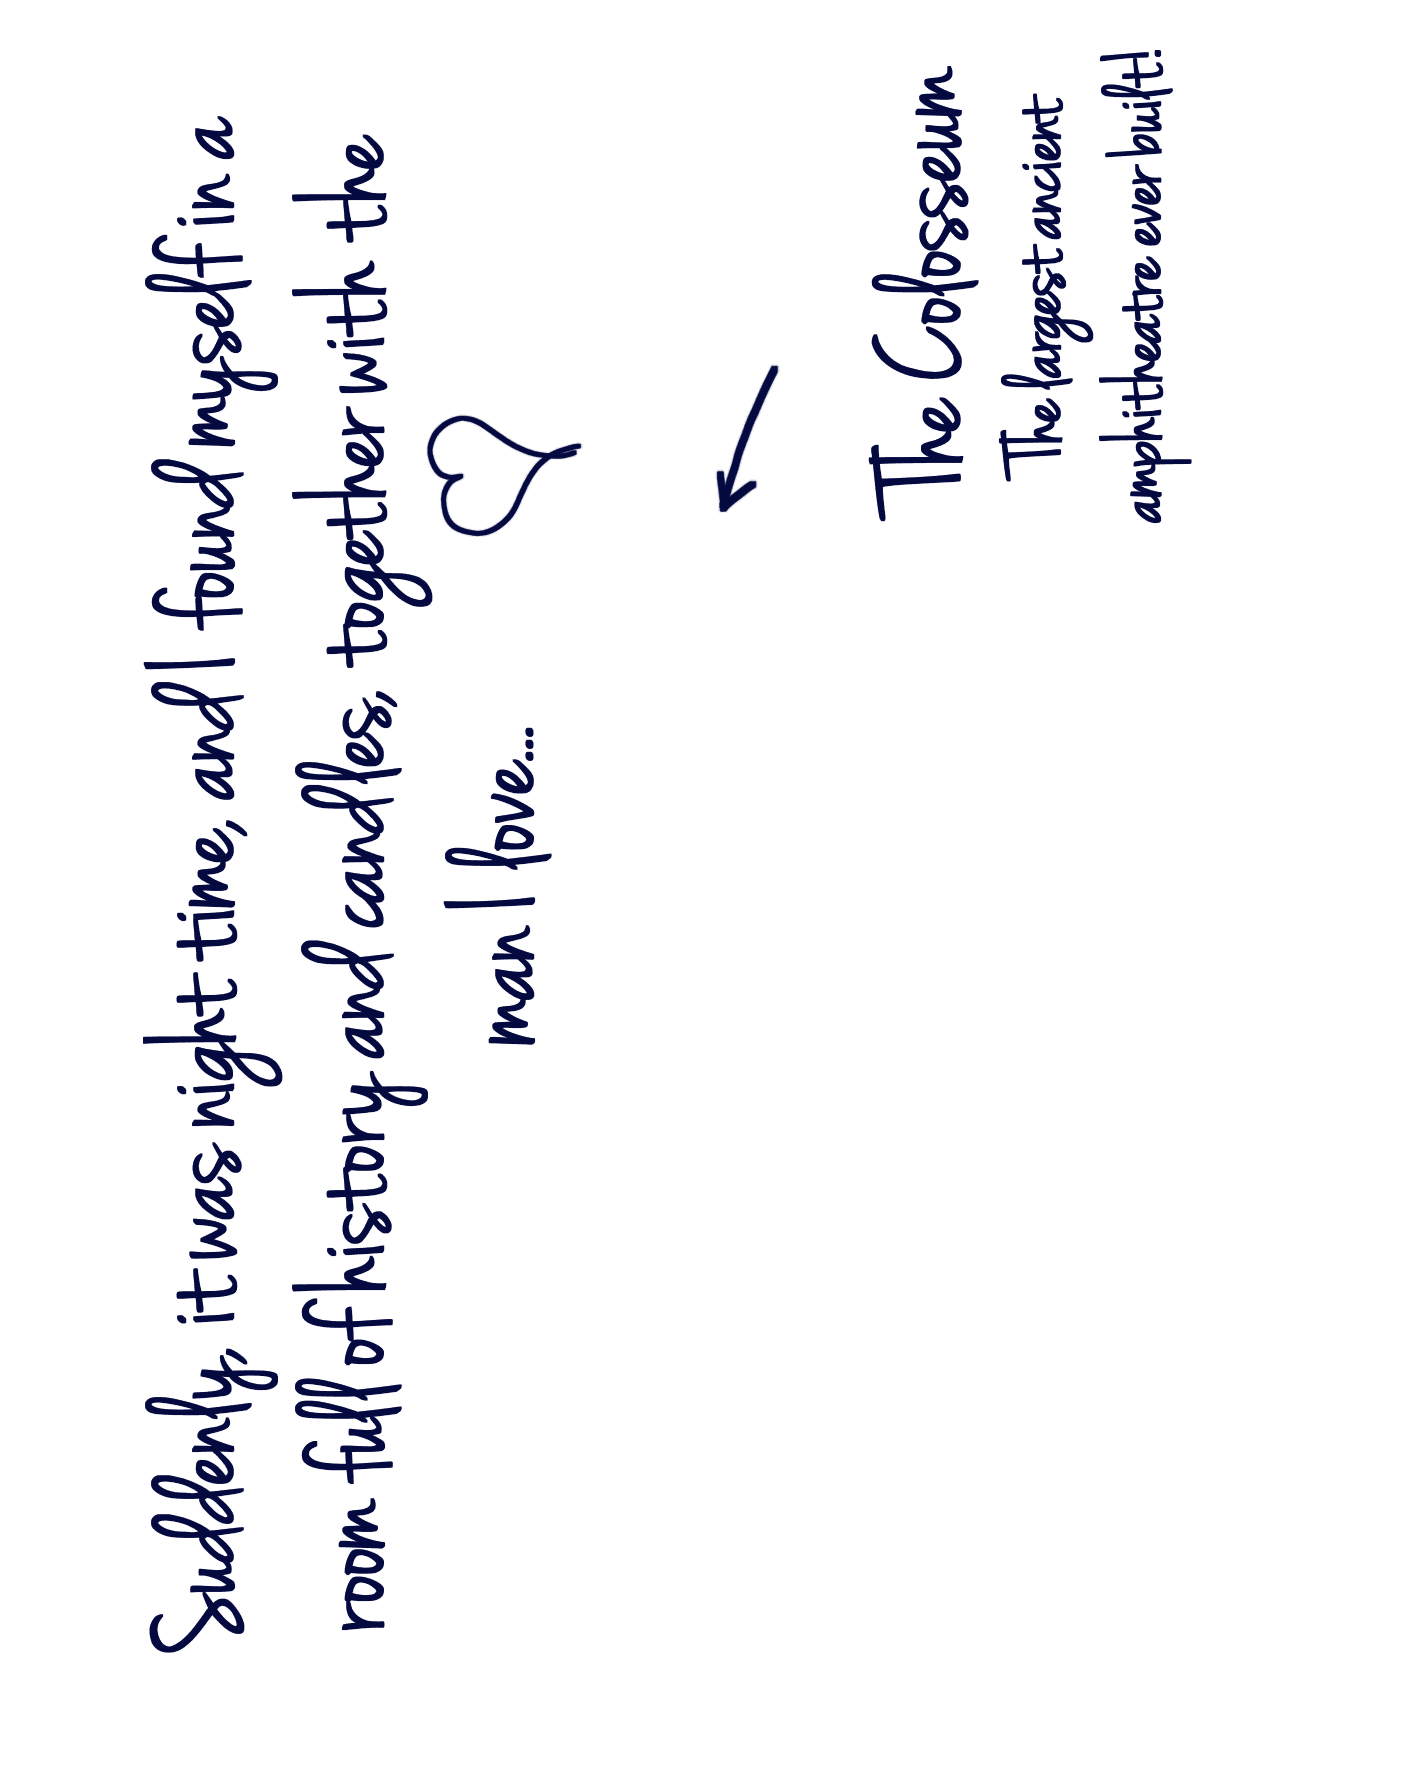 Suddenly, it was night time, and I found myself in a
room full of history and candles, together with the
man I love...
The Colosseum
The largest ancient
amphitheatre ever built!